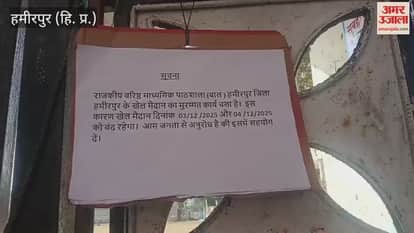 हमीरपुर (हि. प्र.)
अमर उजाला
सूचना
राजकीय वरिष्ठ माध्यमिक पाठशाला (बाल) हमीरपुर जिला
हमीरपुर के खेल मैदान का मुरम्मत कार्य चला है। इस
कारण खेल मैदान दिनांक 03/12/2025 और 04/12/2025
को बंद रहेगा। आम जनता से अनुरोध है की इसमें सहयोग
दें।